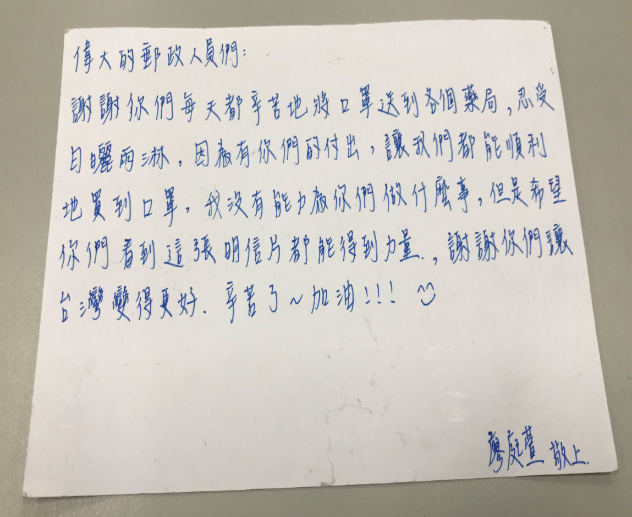 偉大的郵政人員們:
謝謝你們每天都辛苦地將口罩送到各個藥局,忍受
日曬雨淋,因為有你們的付出,讓我們都能順利
地買到口罩,我沒有能力為你們做什麼事,但是希望
你們看到這張明信片都能得到力量.,謝謝你們讓
台灣變得更好.辛苦了~加油!!! ☺
廖庭萱 敬上.